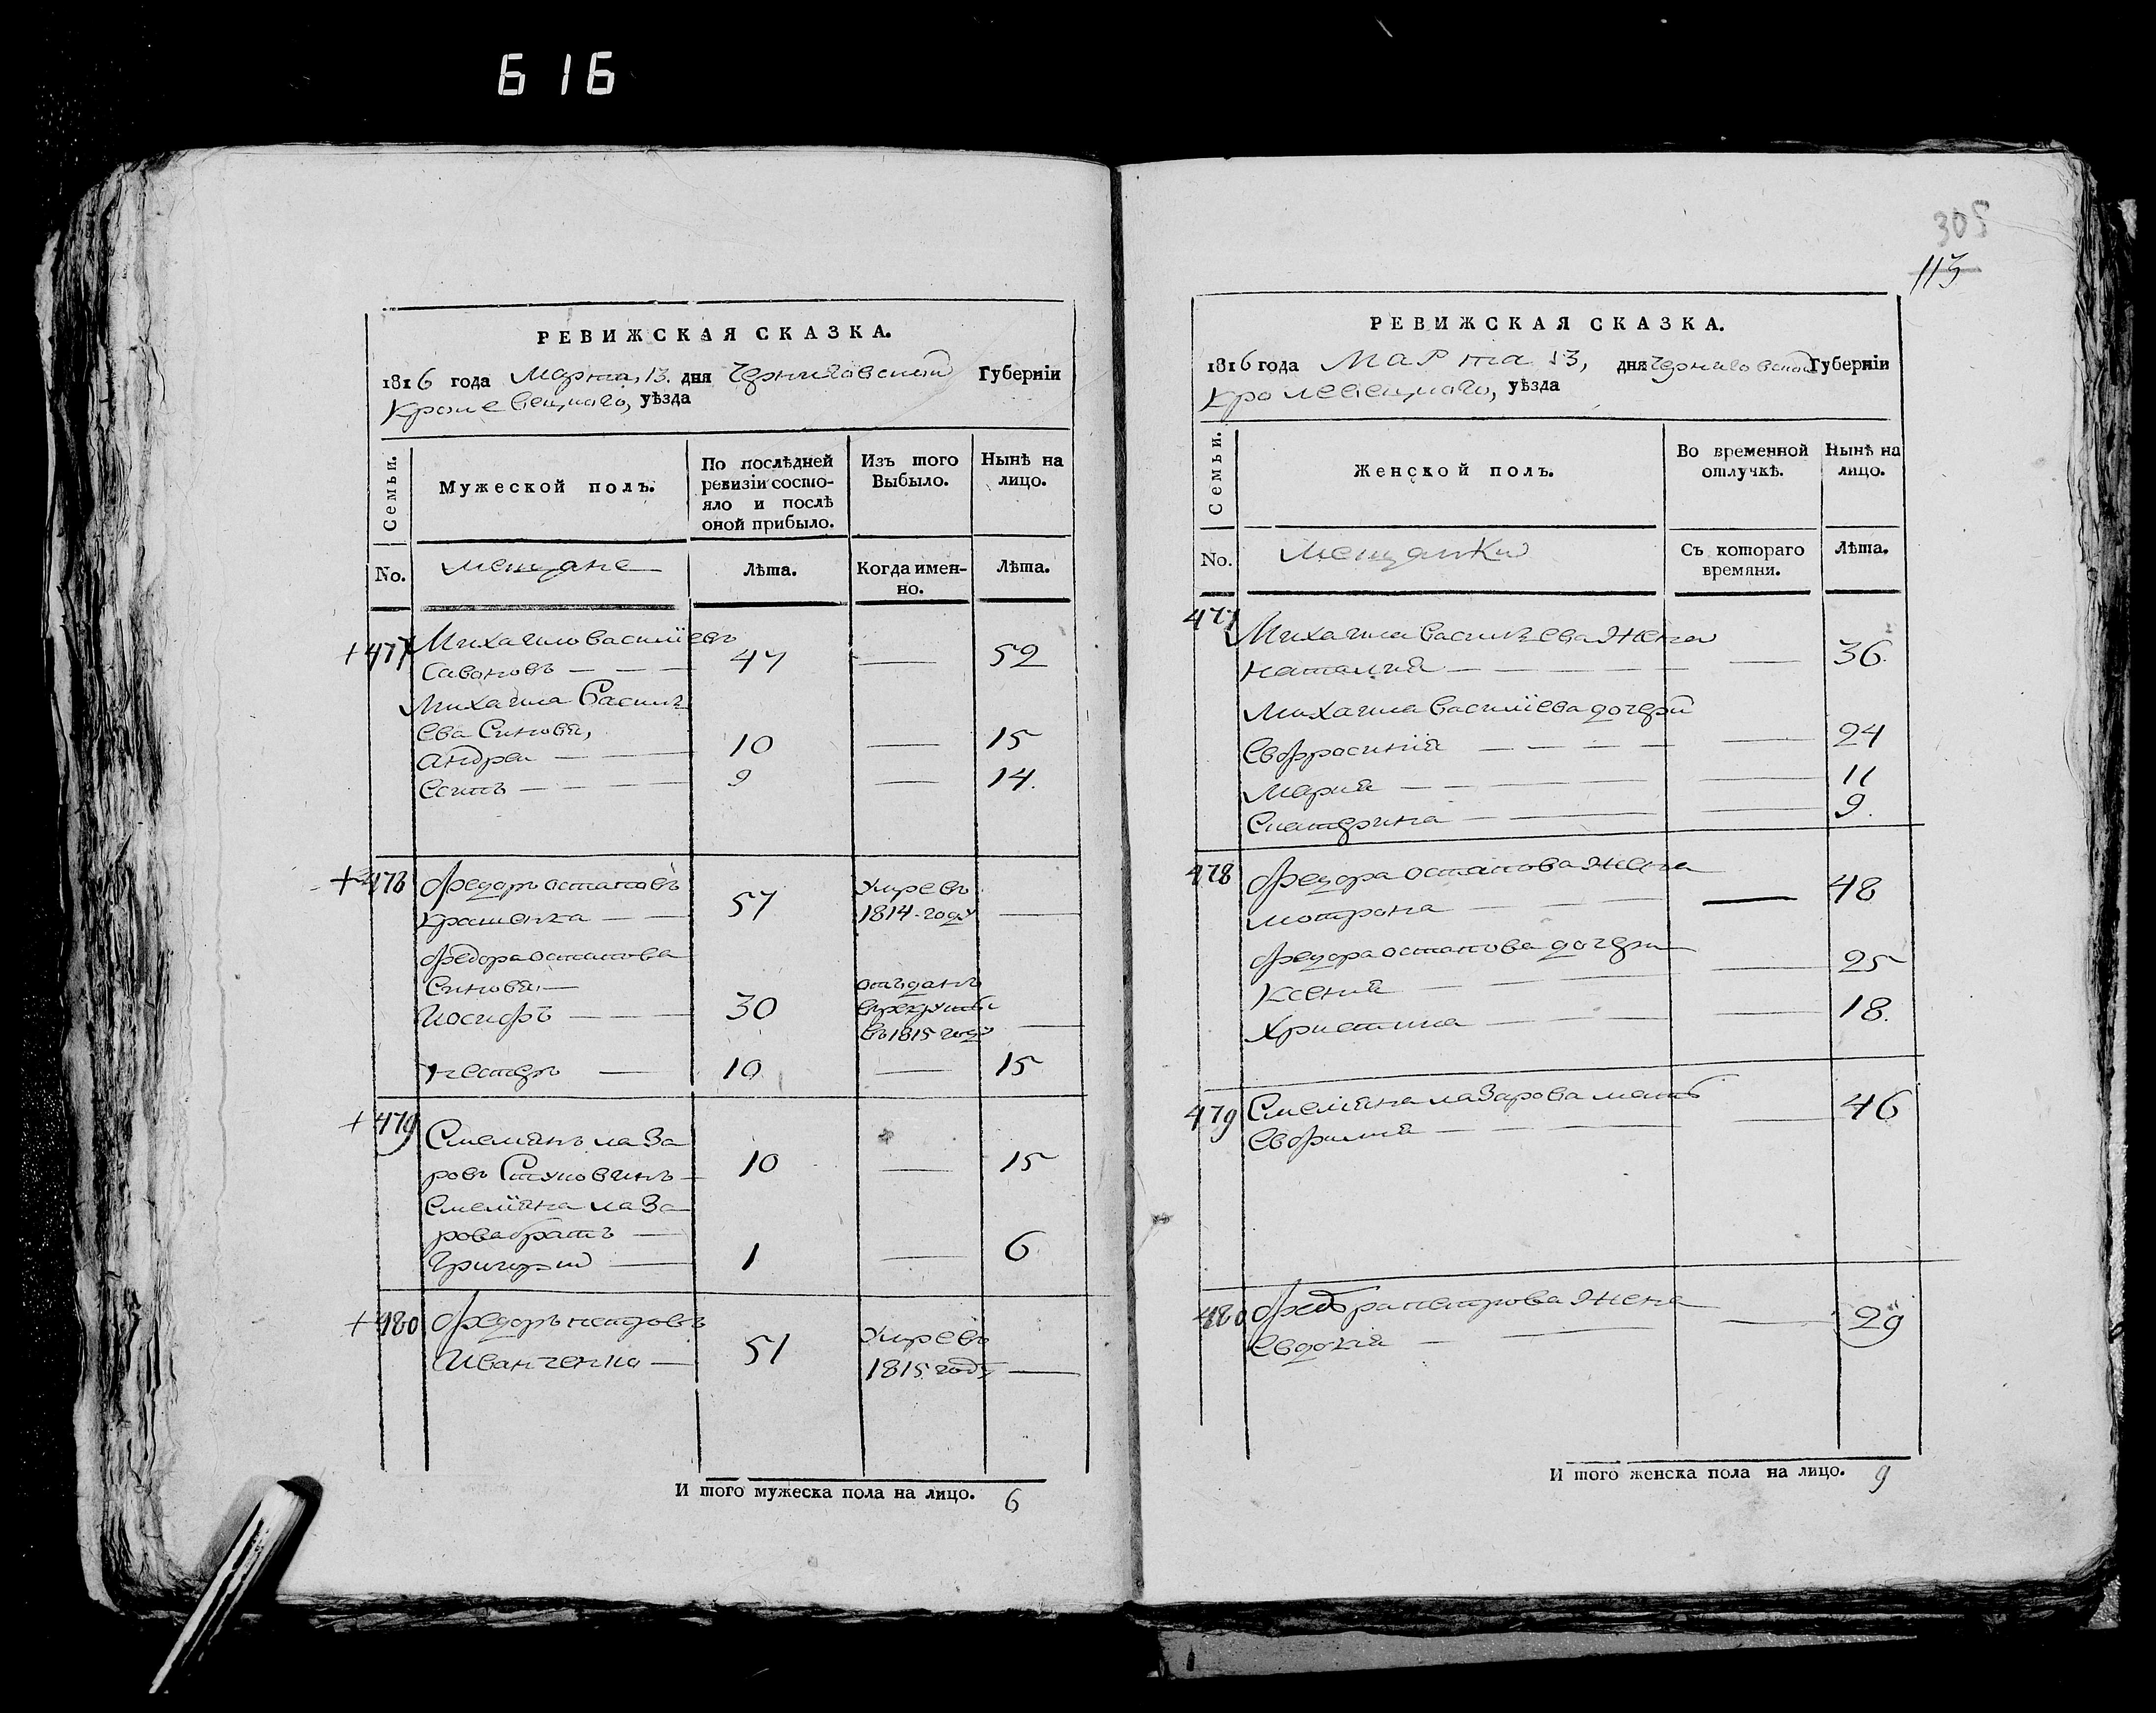 616
РЕВИЖСКАЯ СКАЗКА.
1816 года Марта, 13. дня Черниговской Губерніи
Кролевецкаго, уѣзда
Семьи.
Мужеской полъ.
По послѣдней ревизіи состо-
яло и послѣ
оной прибыло.
Изъ того
Выбыло.
Нынѣ на
лицо.
No.
мещане
Лѣта.
Когда имен-
но.
Лѣта.
+477 Михаило Василіевъ
47 — 52
Михаила Василь
ева Синовя,
Андрей — 10 — 15
9 — 14.
+478 Федоръ Остаповъ
57 Умре въ
1814-году —
Федора Остапова
Синовя, —
Иосифъ — 30 отъданъ
в рекруты
въ 1815 году —
Нестеръ — 10 — 15
+479 Емелянъ Лаза
ровъ 10 — 15
Емеліяна Лаза
рова братъ —
Григорій — 1 — 6
+480 Федоръ Петровъ
Иванченко — 51 Умре въ
1815 году —
И того мужеска пола на лицо. 6
305
113
РЕВИЖСКАЯ СКАЗКА.
1816 года Марта 13, дня Черниговской Губерніи
Кролевецкаго, уѣзда
Семьи.
Женской полъ.
Во временной
отлучкѣ.
Нынѣ на
лицо.
No.
Мещанки
Съ котораго
времяни.
Лѣта.
477 Михаила Васильева Жена
Наталия — — 36.
Михаила Василіева дочери
Евфросинія — — 24
Мария — — 11
Екатерина — — 9.
478 Федора Остапова Жена
Мотрона — — 48
Федора Остапова дочери
Ксения — — 25
Христина — — 18.
479 Емеліяна Лазарова мать
Евфимия — — 46
480 Федора Петрова Жена
Евдокія — — 29
И того женска пола на лицо. 9